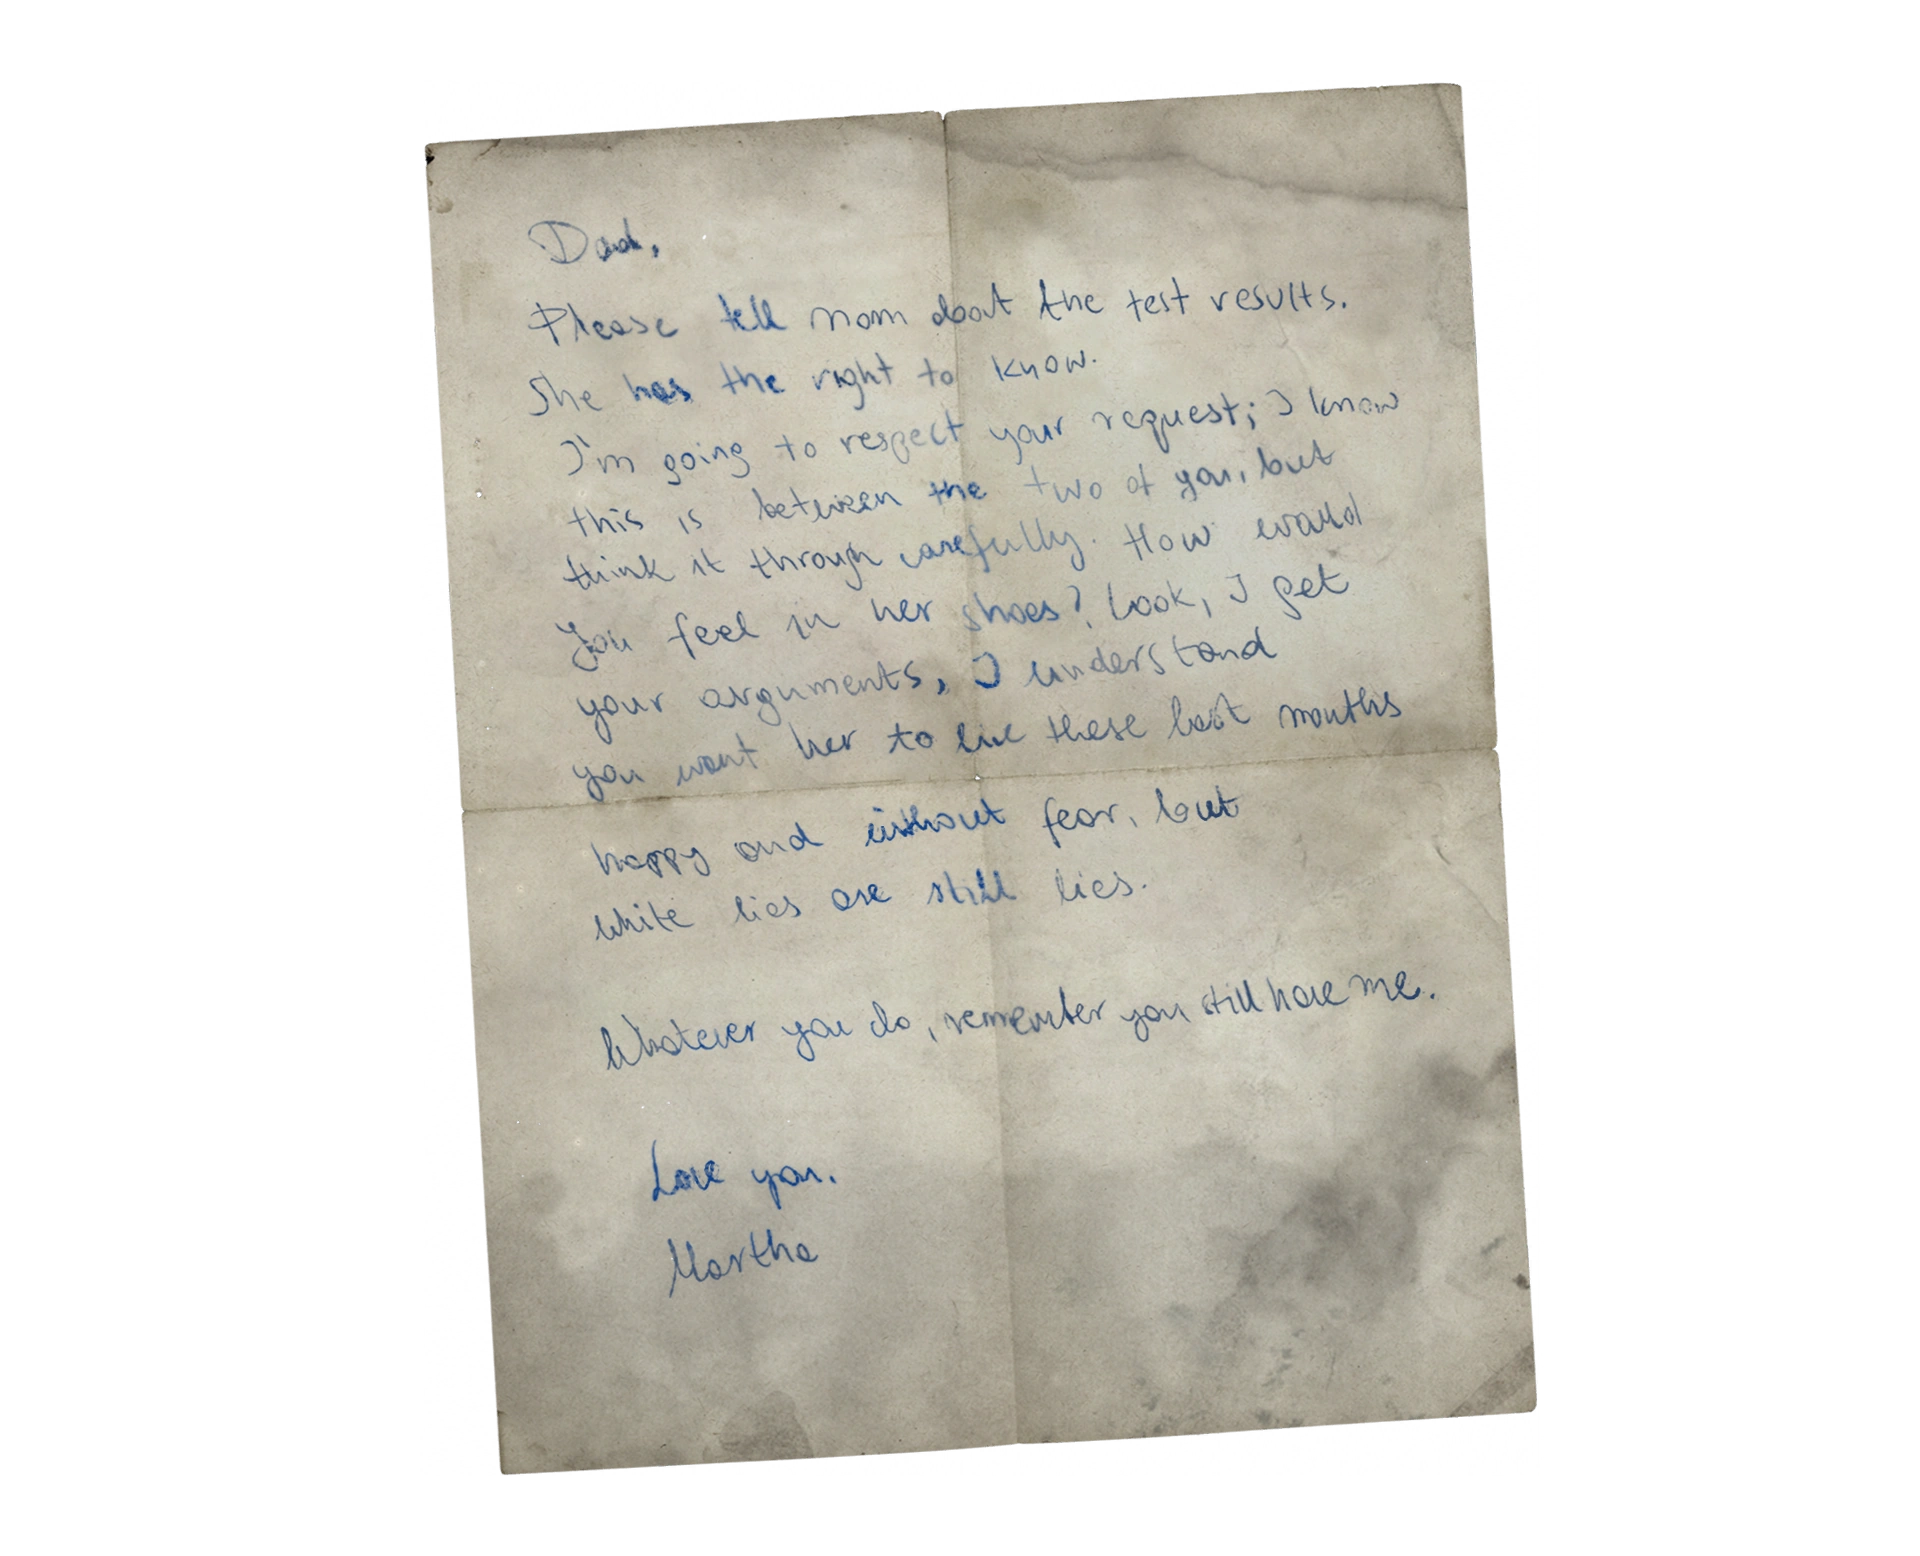 Dad,
Please tell mom about the test results.
She has the right to know.
I'm going to respect your request; I know
this is between the two of you, but
think it through carefully. How would
you feel in her shoes? Look, I get
your arguments, I understand
you want her to live these last months
happy and without fear, but
white lies are still lies.
Whatever you do, remember you still have me.
Love you.
Martha